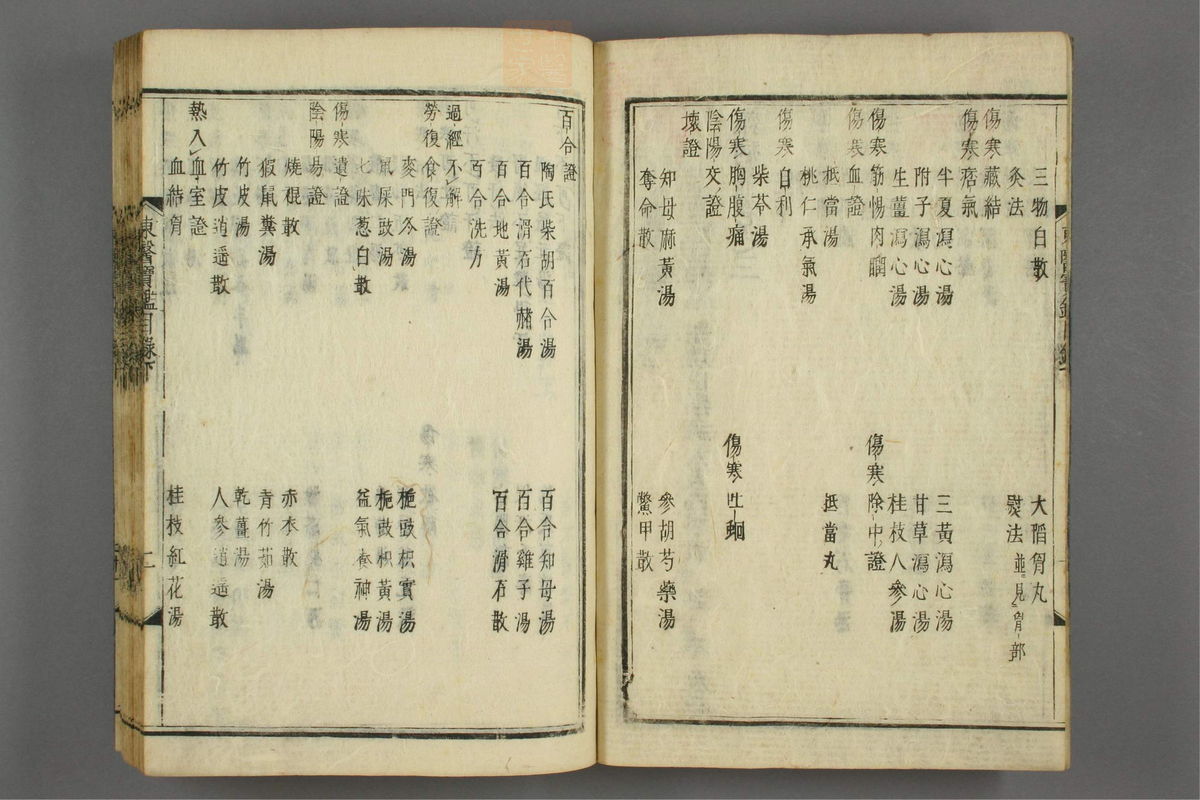 三物白散 大陷胷丸
灸法 熨法並見胷部
傷寒藏結
傷寒痞氣
半夏瀉心湯 三黃瀉心湯
附子瀉心湯 甘草瀉心湯
生薑瀉心湯 桂枝人參湯
傷寒筋惕肉瞤 傷寒除中證
傷寒血證
抵當湯 抵當丸
桃仁承氣湯
傷寒自利
柴苓湯
傷寒胸腹痛 傷寒吐蛔
陰陽交證
壞證
知母麻黃湯 參胡芍藥湯
奪命散 鱉甲散
百合證
陶氏柴胡百合湯 百合知母湯
百合滑石代赭湯 百合雞子湯
百合地黃湯 百合滑石散
百合洗方
過經不解
勞復食復證
麥門冬湯 梔豉枳實湯
鼠屎豉湯 梔豉枳黃湯
七味葱白散 益氣養神湯
傷寒遺證
陰陽易證
燒裩散 赤衣散
猳鼠糞湯 青竹茹湯
竹皮湯 乾薑湯
竹皮逍遥散 人參逍遥散
熱入血室證
血結胷 桂枝紅花湯
東醫寶鑑目錄下